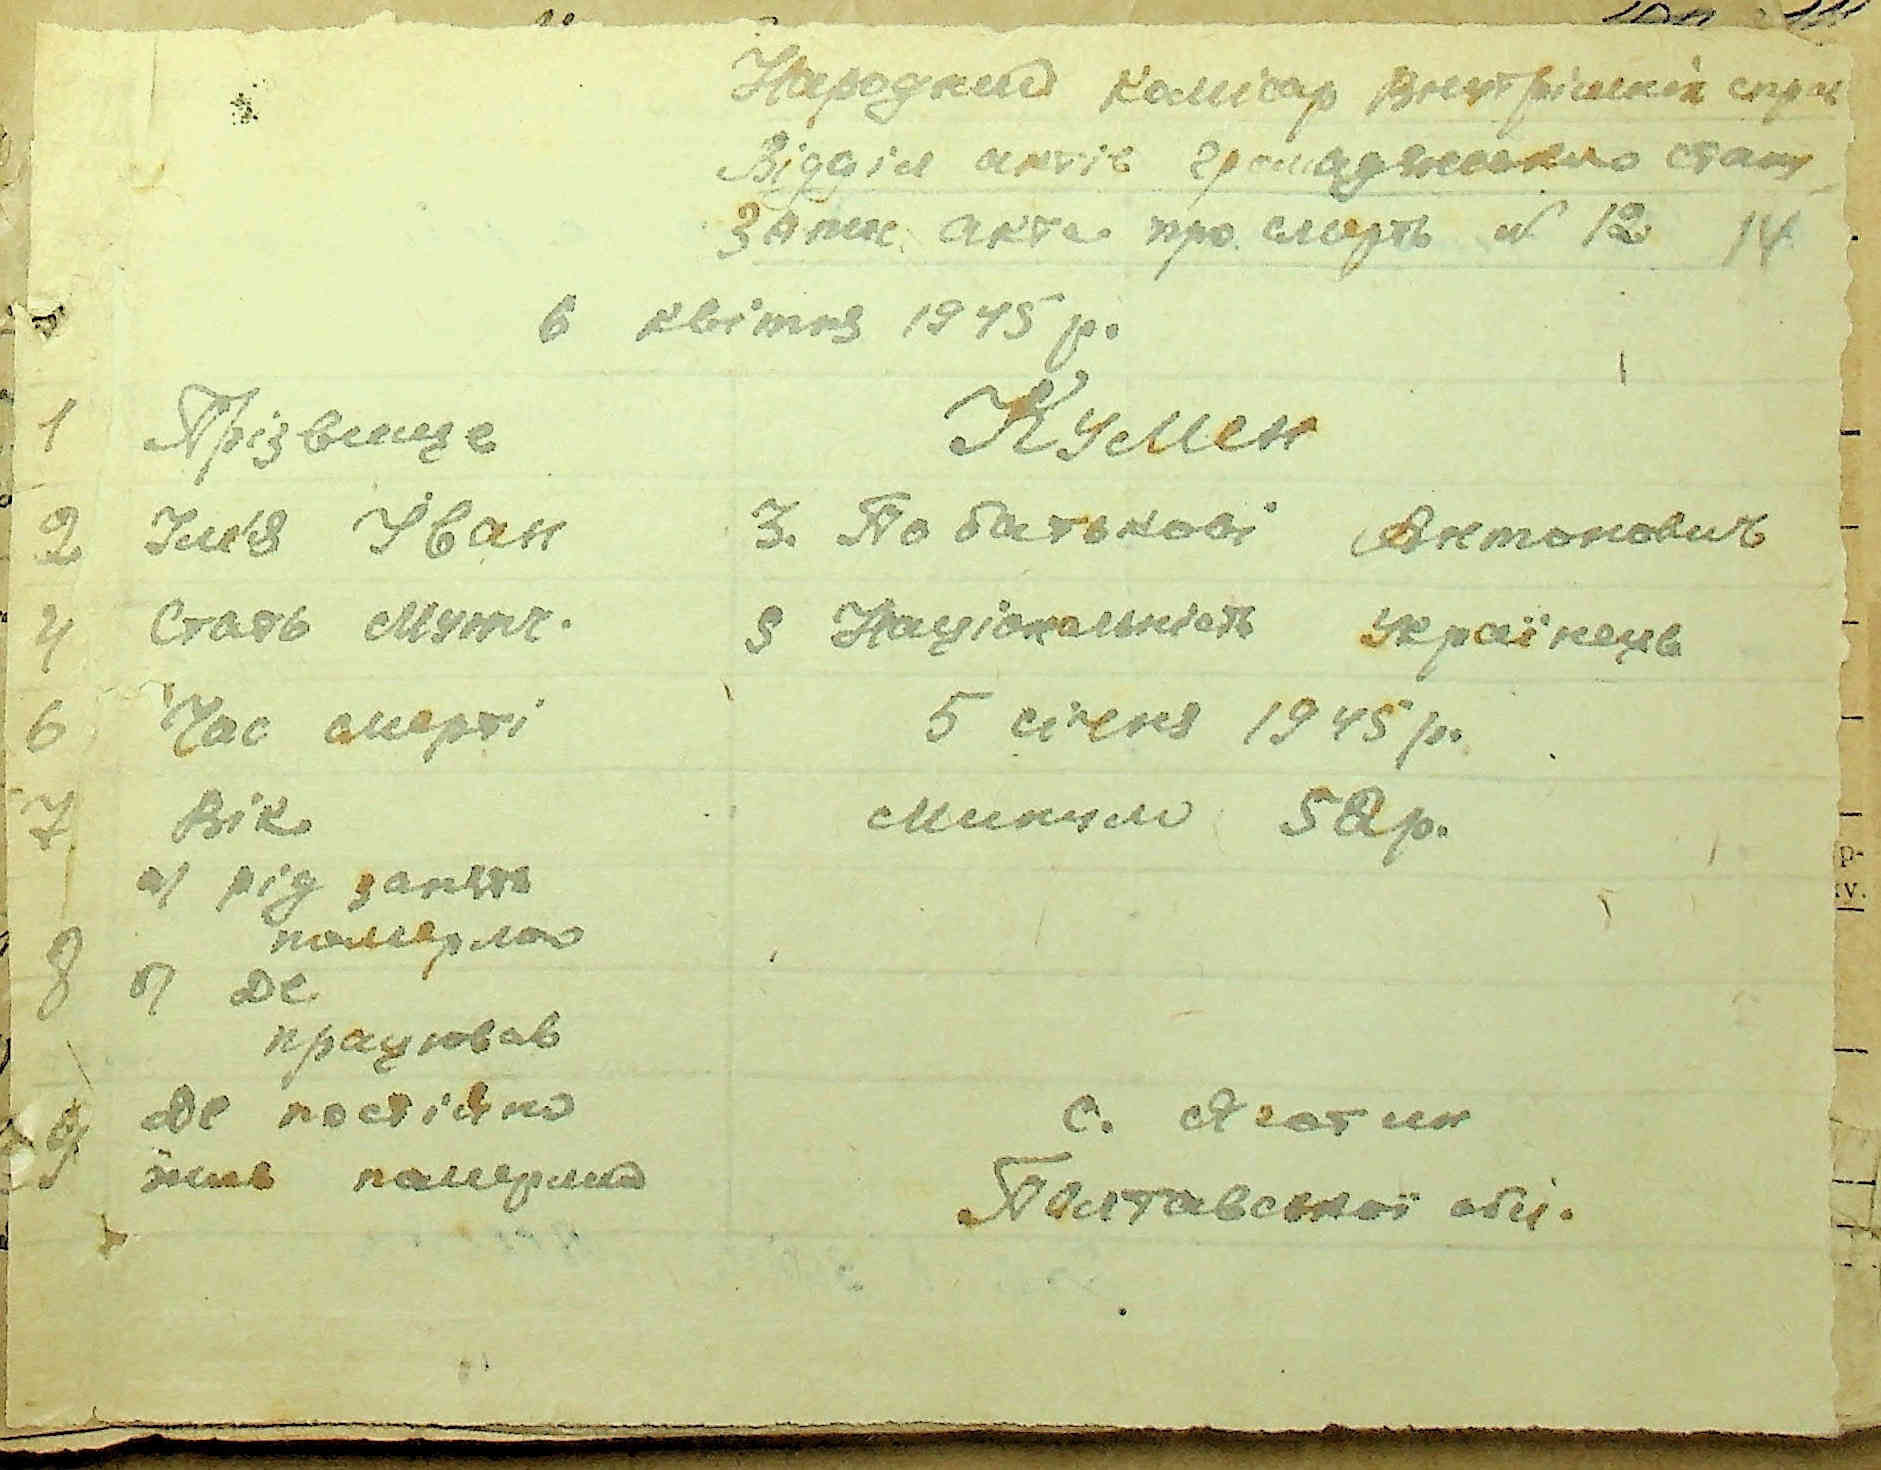 Народний комісар Внутрішніх справ
Відділ актів громадянського стану
Запис акта про смерть № 12 14
6 квітня 1945 р.
1 Прізвище Кумен
2 Ім'я Іван 3. По батькові Антонович
4 Стать Мужч. 5 Національність Українець
6 Час смерті 5 січня 1945 р.
7 Вік Минуло 52 р.
а) рід занять
померлого
8 б) Де
працював
9 Де постійно с. Яготин
жив померлий Полтавської обл.